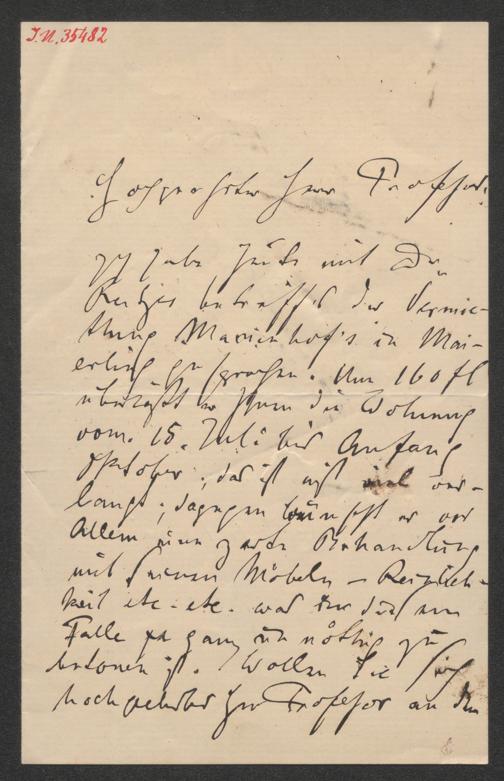 I.N. 35482
Hochgeehrter Herr Professor!
Ich habe heute mit Dr.
betreffs der Vermie-
thung Marienhof's in Mai-
erling gesprochen. Um 160 fl
überlässt er Ihnen die Wohnung
vom 15. Juli bis Anfang
Oktober; das ist nicht viel ver-
langt; dagegen wünscht er vor
Allem eine zarte Behandlung
mit seinen Möbeln – Reinlich-
keit etc. etc. was in diesem
Falle ja ganz unnöthig zu
betonen ist. Wollen Sie sich
hochgeehrter Herr Professor an den